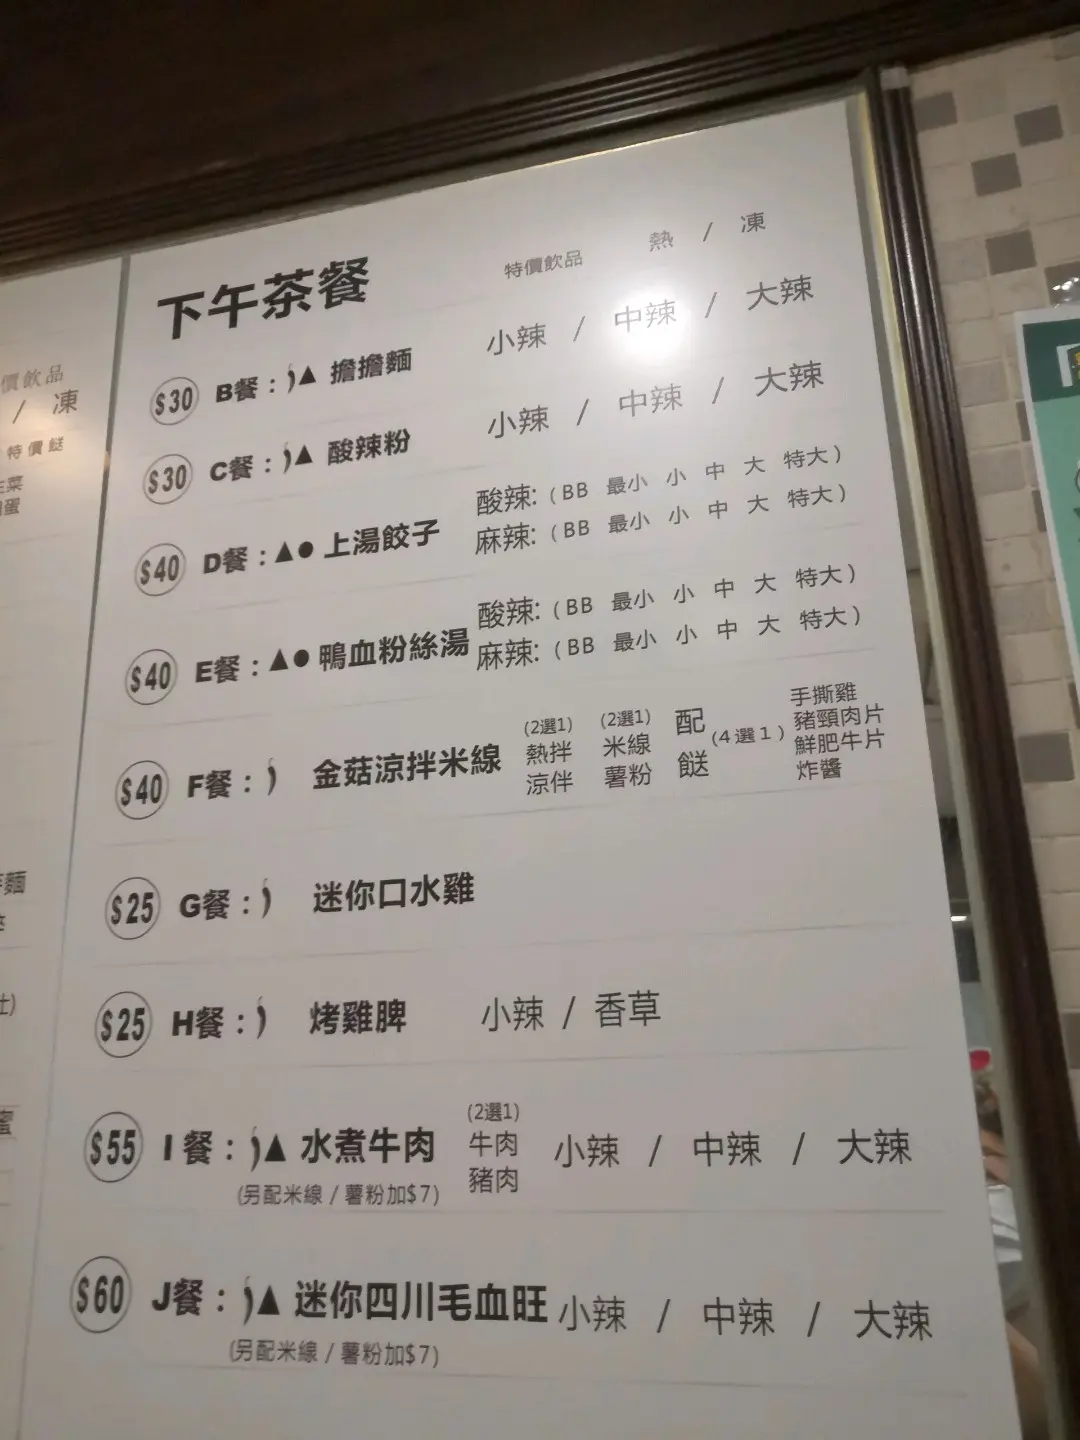 下午茶餐 特價飲品 熱 / 凍
$30 B餐：▲ 擔擔麵 小辣 / 中辣 / 大辣
$30 C餐：▲ 酸辣粉 小辣 / 中辣 / 大辣
$40 D餐：▲● 上湯餃子 酸辣:（BB 最小 小 中 大 特大）
麻辣:（BB 最小 小 中 大 特大）
$40 E餐：▲● 鴨血粉絲湯 酸辣:（BB 最小 小 中 大 特大）
麻辣:（BB 最小 小 中 大 特大）
$40 F餐： 金菇涼拌米線 (2選1) 熱拌 涼伴 (2選1) 米線 薯粉 配餸 (4選1) 手撕雞
豬頸肉片
鮮肥牛片
炸醬
$25 G餐： 迷你口水雞
$25 H餐： 烤雞脾 小辣 / 香草
$55 I 餐：▲ 水煮牛肉 (2選1) 牛肉 豬肉 小辣 / 中辣 / 大辣
(另配米線 / 薯粉加$7)
$60 J餐：▲ 迷你四川毛血旺 小辣 / 中辣 / 大辣
(另配米線 / 薯粉加$7)
價飲品
/ 凍
特價餸
菜
蛋
麵